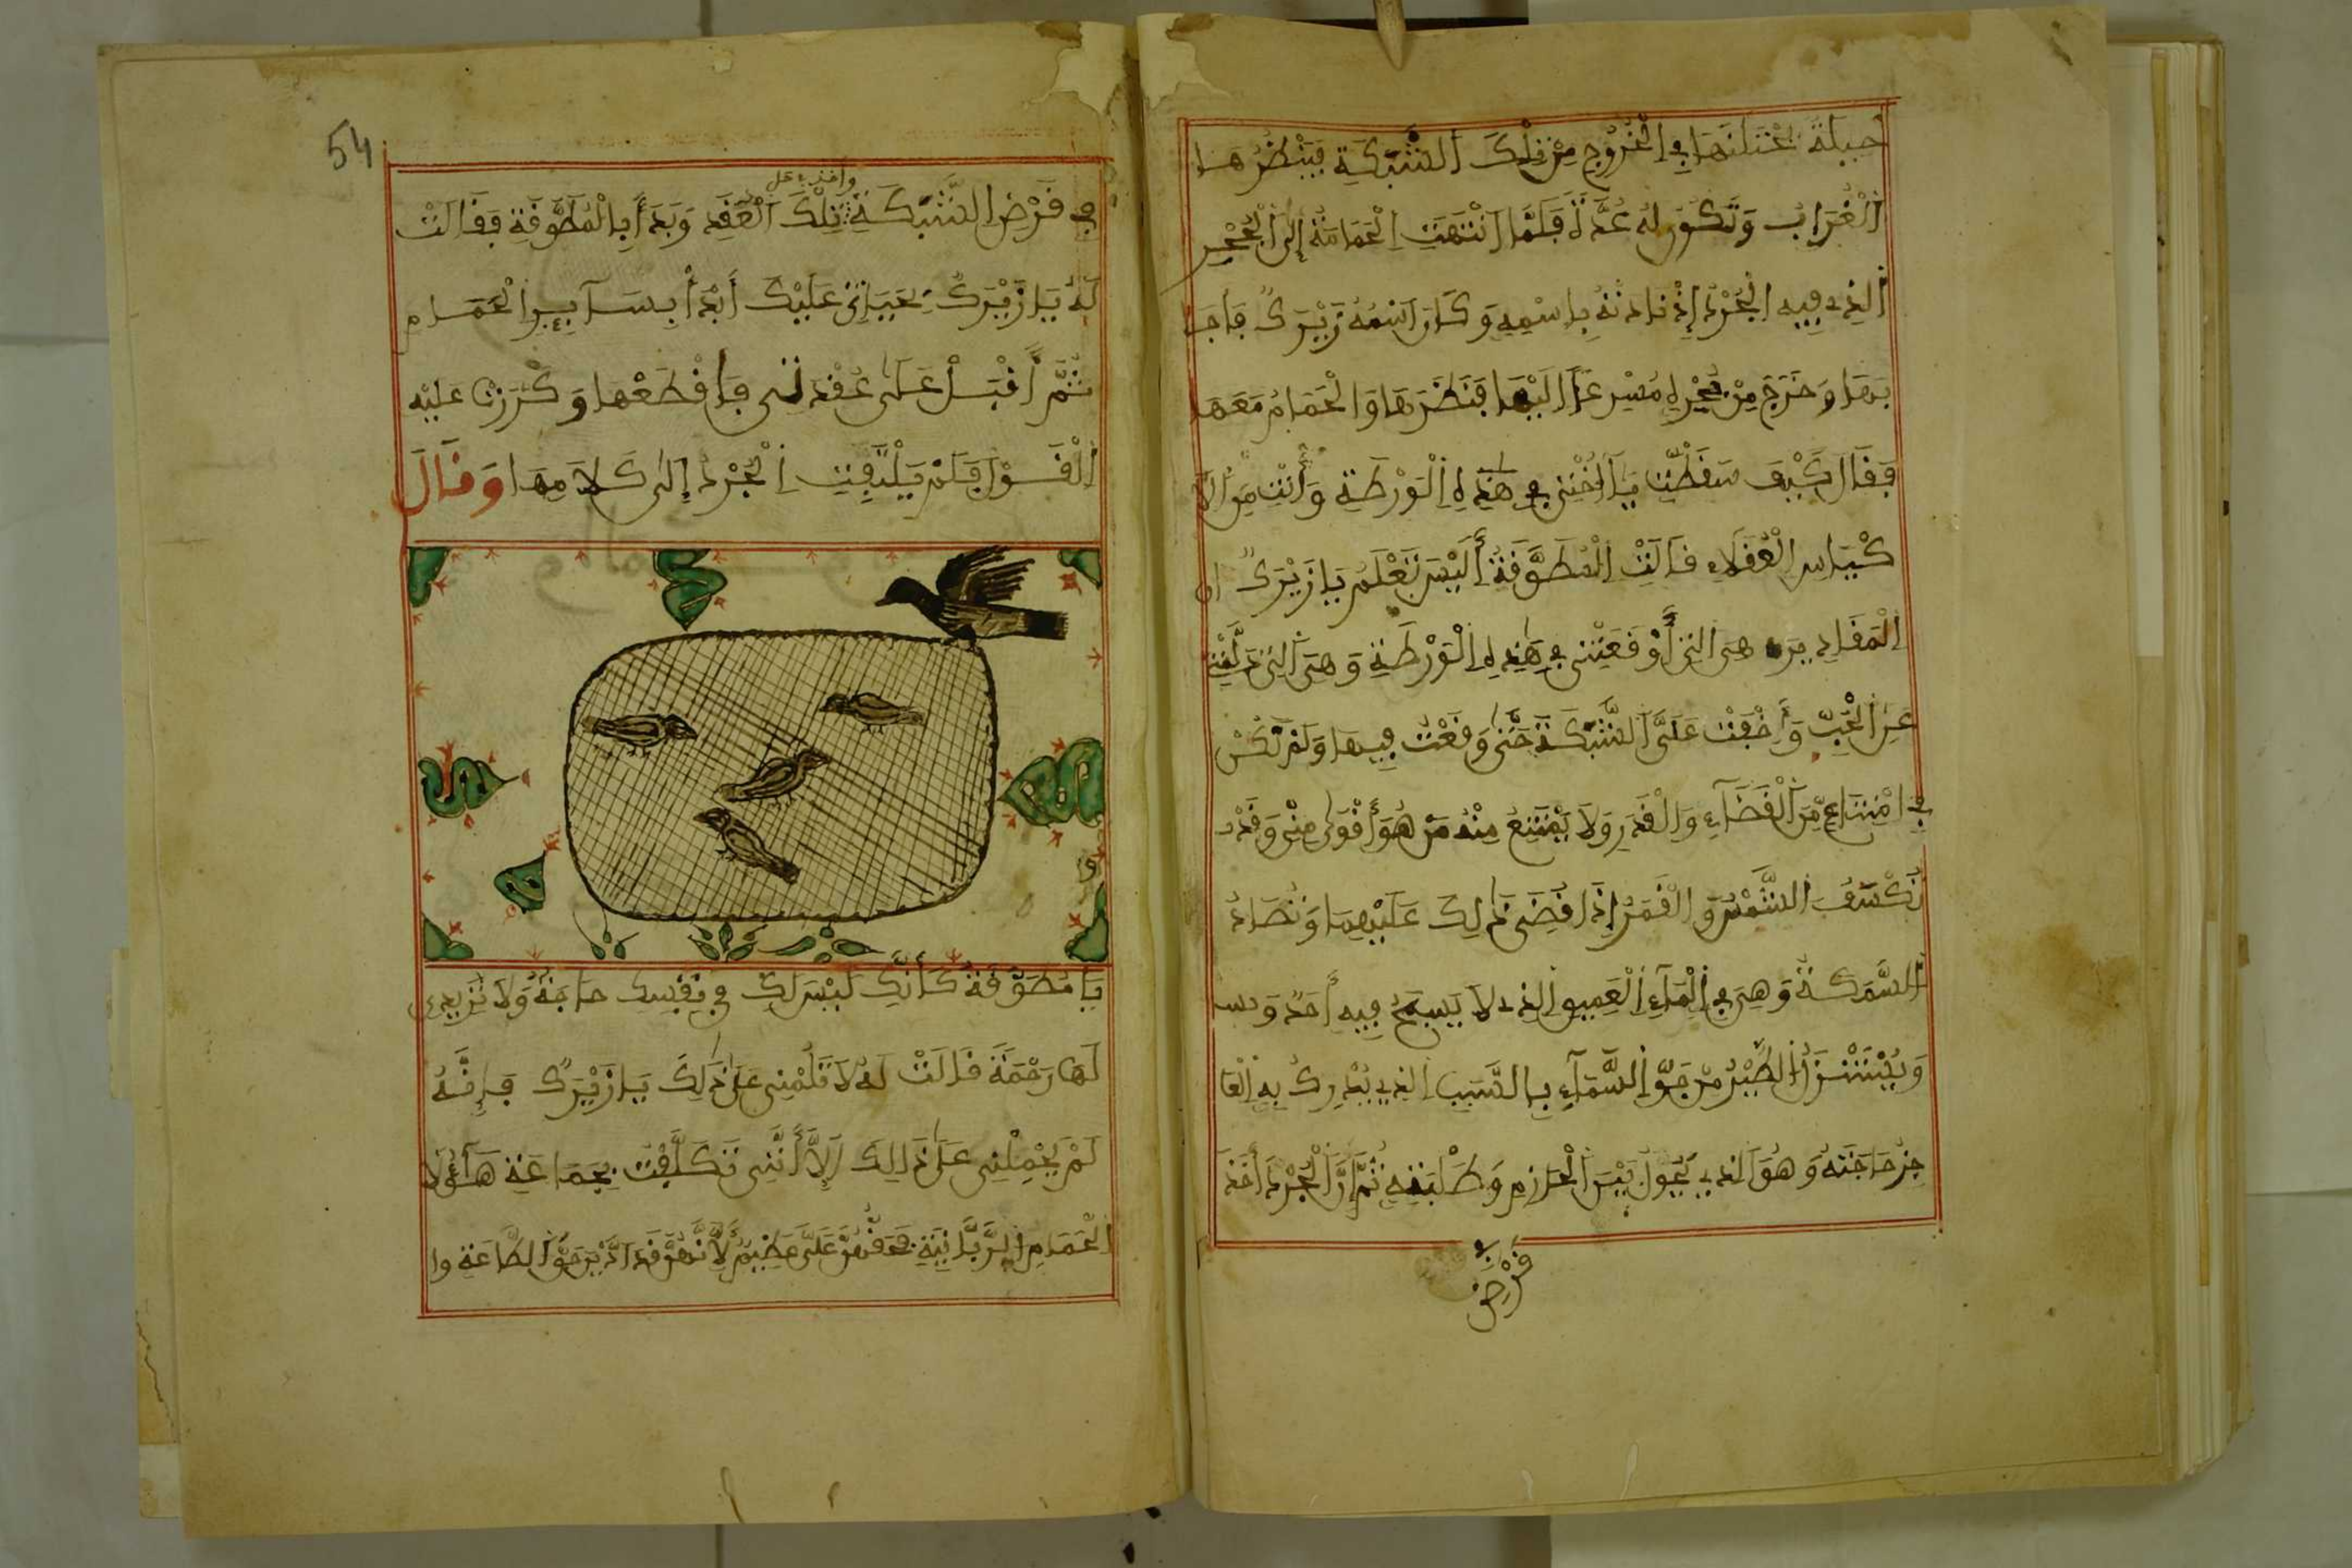 حيلة تحتلتها في الخُرُوجِ مِن تِلْكَ الشَّبَكَةِ فَيَنْظُرُهَا
الْغُرَابُ وَتَكُونُ لَهُ عُدَّةً فَلَمَّا انْتَهَتِ الْحَمَامَةُ إِلَى الْجُحْرِ
الذِي فِيهِ الْجُرَذُ إِذْ نَادَتْهُ بِاسْمِهِ وَكَانَ اسْمُهُ زَيْرَكٌ فَأَجَا
بَهَا وَخَرَجَ مِنْ جُحْرِهِ مُسْرِعًا إِلَيْهَا فَنَظَرَهَا وَالْحَمَامُ مَعَهَا
فَقَالَ كَيْفَ سَقَطْتِ يَا أُخْتِي فِي هَذِهِ الْوَرْطَةِ وَأَنْتِ مِنَ الأَ
كْيَاسِ الْعُقَلَاءِ قَالَتْ الْمُطَوَّقَةُ أَلَيْسَ تَعْلَمُ يَا زَيْرَكُ ان
الْمَقَادِيرَ هِيَ التِي أَوْقَعَتْنِي فِي هَذِهِ الْوَرْطَةِ وَهِيَ التِي دَلَّتْنِي
عَنِ الْحَبِّ وَأَخْفَتْ عَلَيَّ الشَّبَكَةَ حَتَّى وَقَعْتُ فِيهَا وَلَمْ نَكُنْ
فِي امْتِنَاعٍ مِّنَ الْقَضَاءِ وَالْقَدَرِ وَلَا يَمْتَنِعُ مِنْهُ مَنْ هُوَ أَقْوَى مِنِّي وَقَدْ
تُكْسَفُ الشَّمْسُ وَالْقَمَرُ إِذَا قُضِيَ ذَلِكَ عَلَيْهِمَا وَتُصَادُ
السَّمَكَةُ وَهِيَ فِي الْمَاءِ الْعَمِيقِ الذِي لَا يَسْبَحُ فِيهِ أَحَدٌ
وَيُسْتَنْزَلُ الطَّيْرُ مِنْ جَوِّ السَّمَاءِ بِالسَّبَبِ الذِي يُدْرِكُ بِهِ الْعَا
جِزُ حَاجَتَهُ وَهُوَ الذِي يَحُولُ بَيْنَ الْحَازِمِ وَطَلِبَتِهِ ثُمَّ إِنَّ الْجُرَذَ أَخَذَ
في
قَرْضِ
54
واخذ على
فِي قَرْضِ الشَّبَكَةِ تِلْكَ الْعُقَدِ وَبَدَأَ بِالْمُطَوَّقَةِ فَقَالَتْ
لَهُ يَا زَيْرَكُ بِحَيَاتِي عَلَيْكَ أَبْدَأْ بِسَآئِرِ الْحَمَامِ
ثُمَّ أَقْبِلْ عَلَى عُقْدَتِي فَاقْطَعْهَا وَكَرَّرَتْ عَلَيْهِ
الْقَوْلَ فَلَمْ يَلْتَفِتِ الْجُرَذُ إِلَى كَلَامِهَا وَقَالَ
يَا مُطَوَّقَةُ كَأَنَّكِ لَيْسَ لَكِ فِي نَفْسِكِ حَاجَةٌ وَلَا تُرِيدِي
لَهَا رَحْمَةً قَالَتْ لَهُ لَا تَلُمْنِي عَلَى ذَلِكَ يَا زَيْرَكُ فَإِنَّهُ
لَمْ يَحْمِلْنِي عَلَى ذَالِكَ إِلَّا أَنَّنِي تَكَلَّفْتُ بِجَمَاعَةِ هَآؤُلَا
الْحَمَامِ الرَّبَّانِيَّةِ فَحَقُّهُنَّ عَلَيَّ عَظِيمٌ لِأَنَّهُنَّ قَدْ أَدَّيْنَ حَقَّ الطَّاعَةِ وا